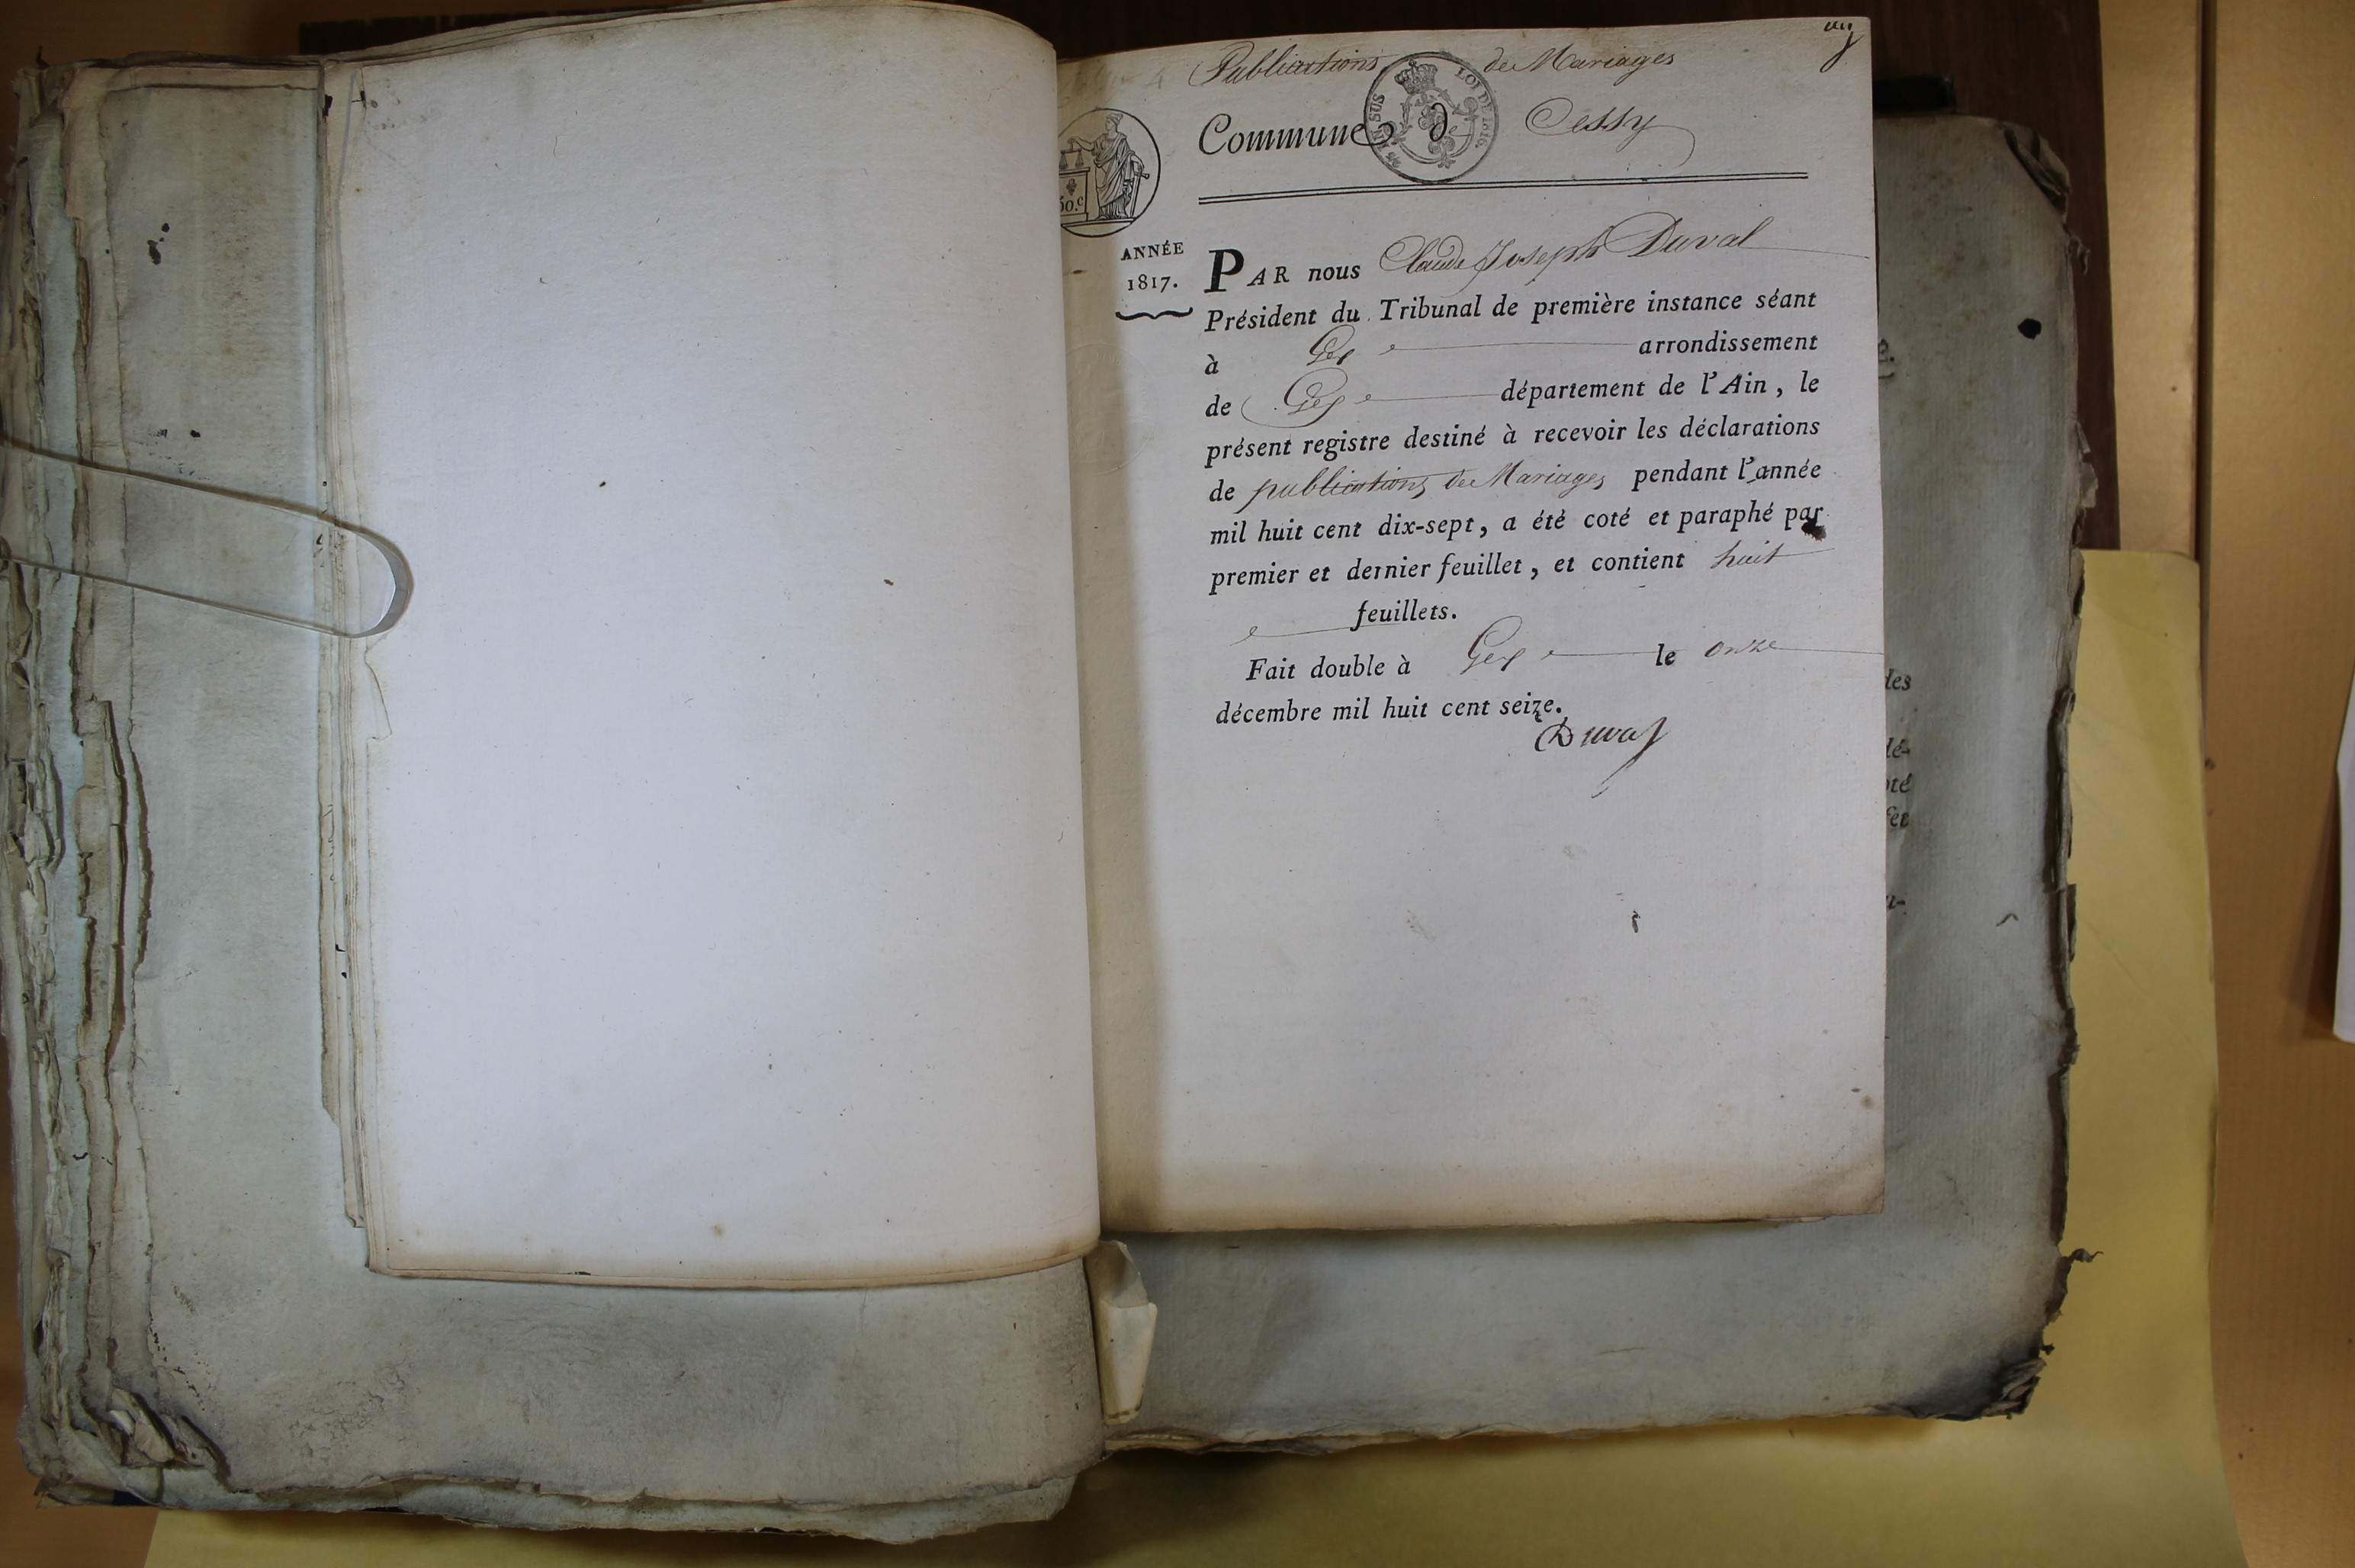 Publications de Mariages
Commune de Cessy
LOI DE 1816.
EN SUS
50.c
ANNÉE
1817.
PAR nous Claude Joseph Duval
Président du Tribunal de première instance séant
à Gex arrondissement
de Gex département de l'Ain, le
présent registre destiné à recevoir les déclarations
de publications de Mariages pendant l'année
mil huit cent dix-sept, a été coté et paraphé par
premier et dernier feuillet, et contient huit
feuillets.
Fait double à Gex le onze
décembre mil huit cent seize.
Duval
des
dé-
oté
fet